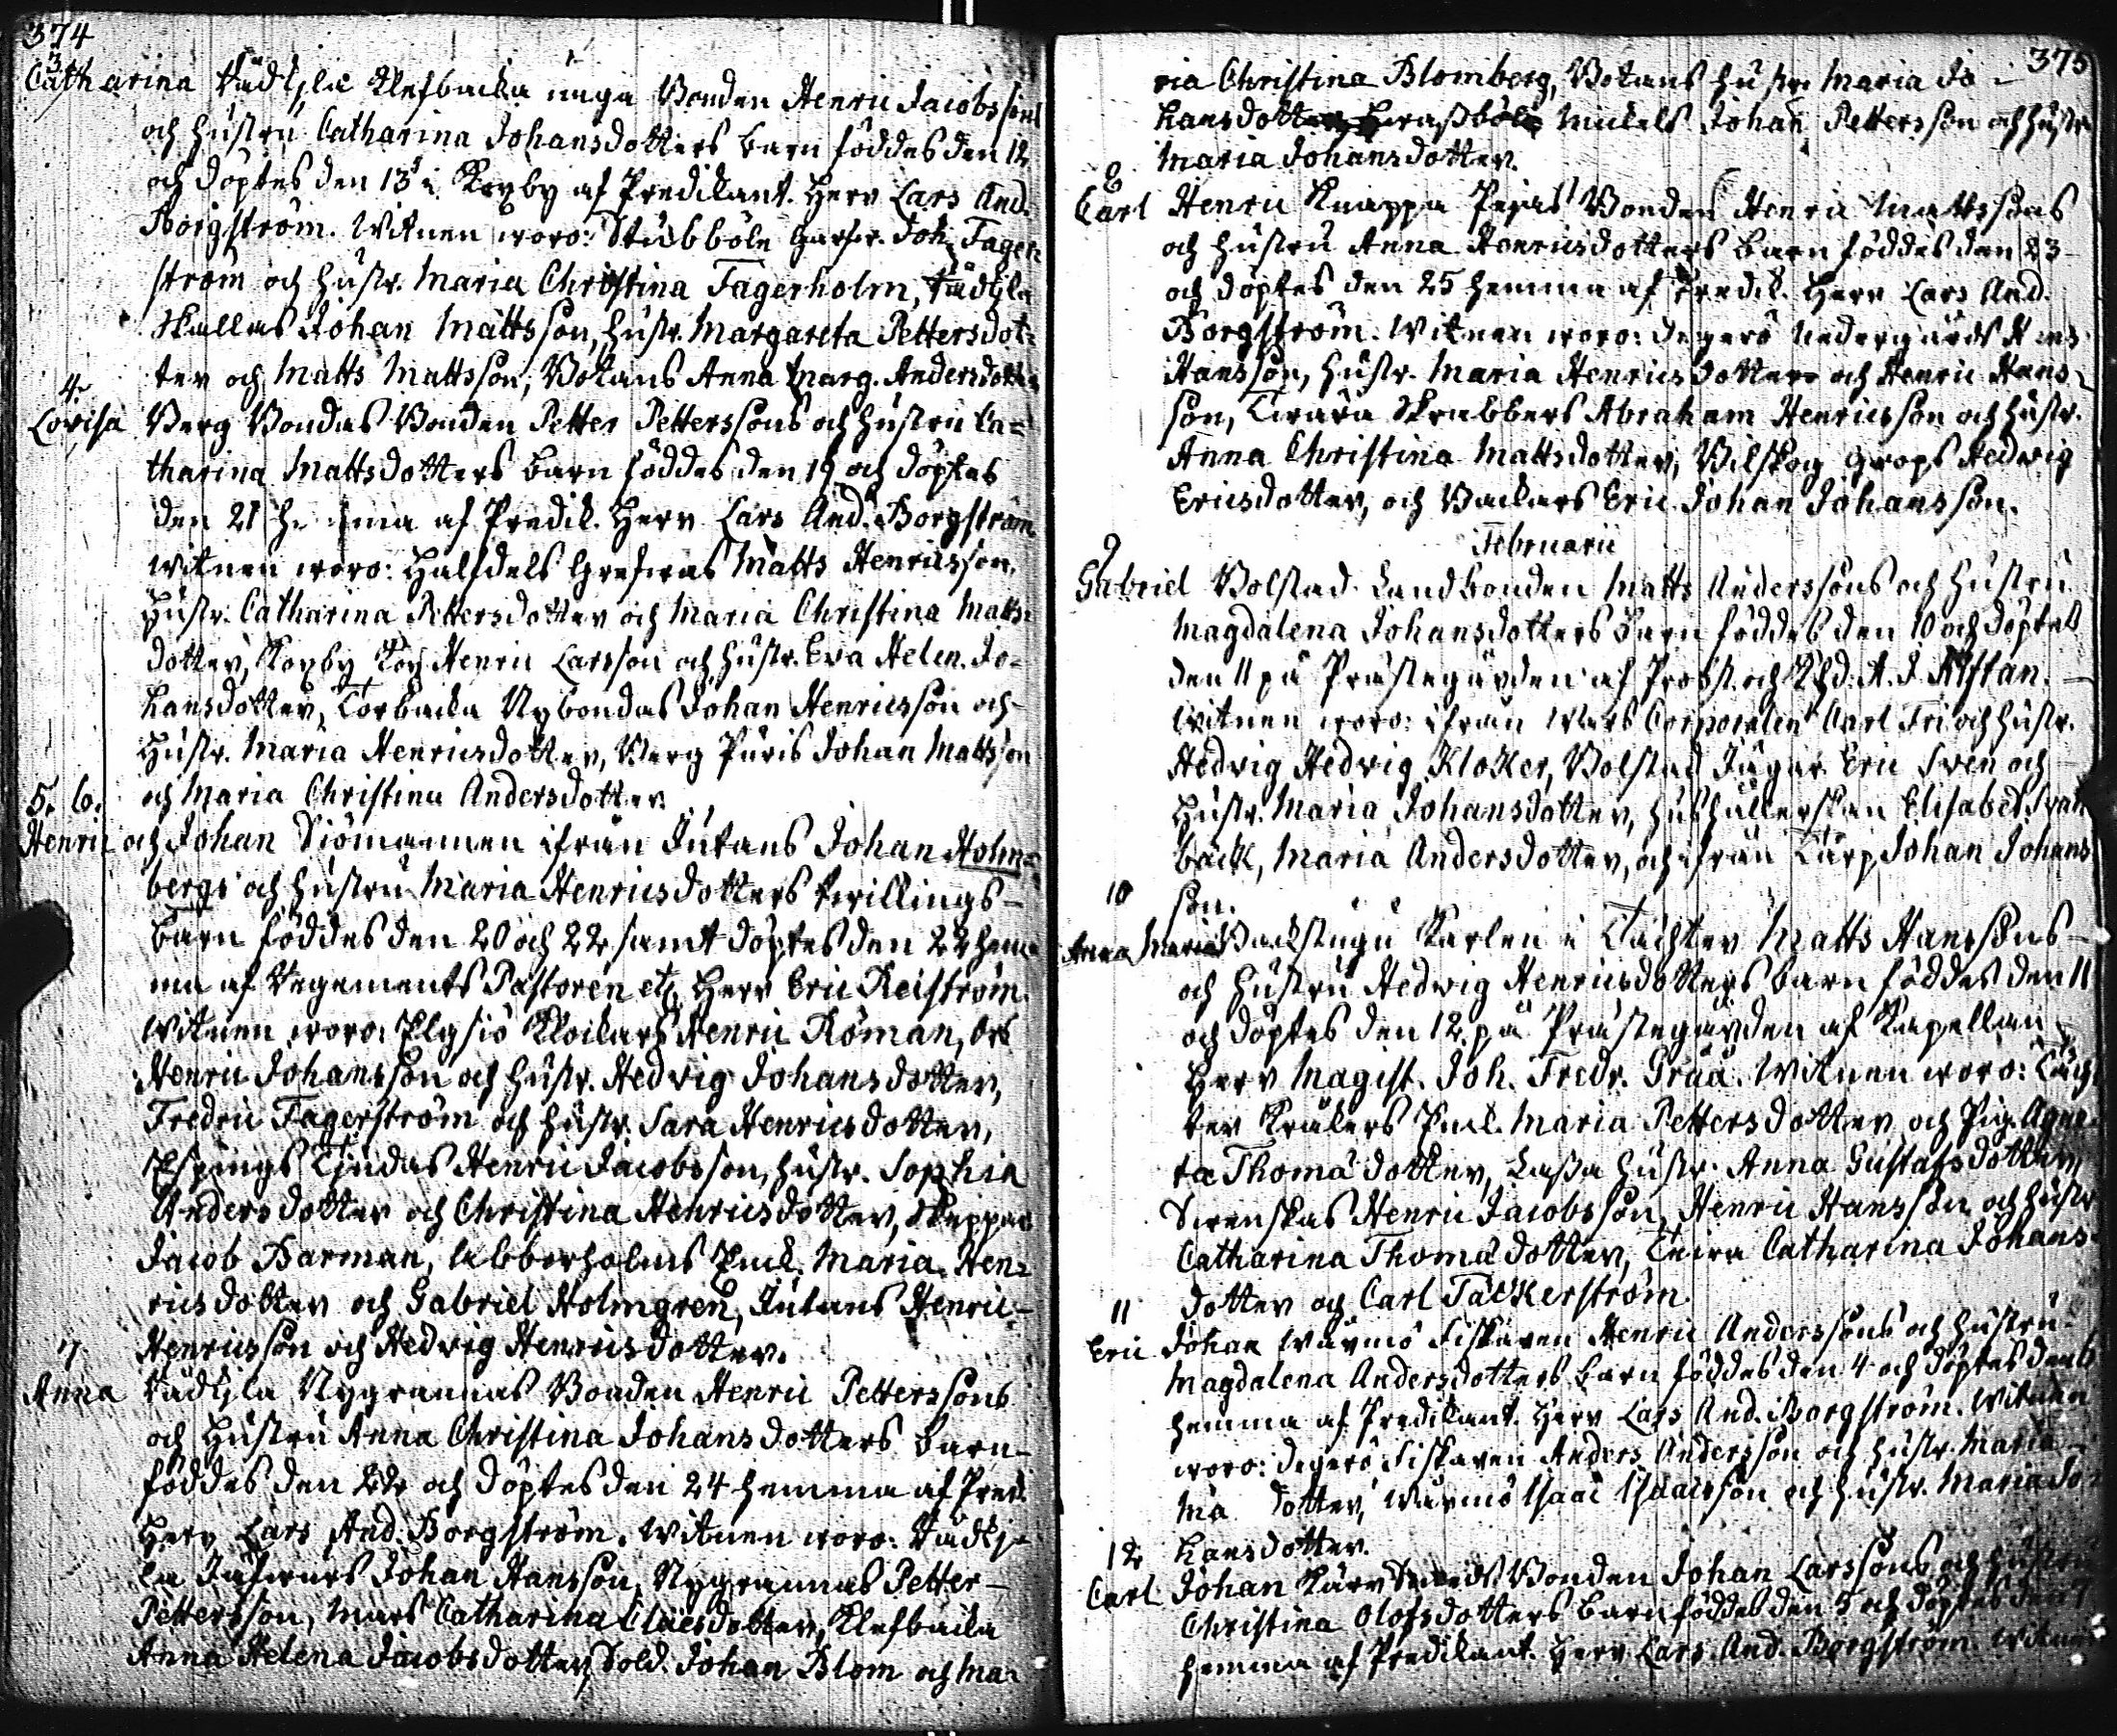 374
3.
Catharina Kådkjla Klefbacka unga Bonden Henric Jacobssons
och hustru Catharina Johansdotters barn föddes den 12
och döptes den 13 i Koxby af Predikant. Herr Lars And.
Borgström. Witnen woro: Stubböle Joh. Fager
ström och hustr. Maria Christina Fagerholm, Kådkjla
Skallas Johan Mattsson, hustr. Margareta Pettersdot-
ter och Matts Mattsson, Botans Anna Marg. Andersdotter
4.
Lovisa Berg Bondas Bonden Petter Petterssons och hustru Ca-
tharina Mattsdotters barn föddes den 19 och döptes
den 21 hemma af Predik. Herr Lars And. Borgström
witnen woro: Halfdels Grefwas Matts Henricsson,
hustr. Catharina Pettersdotter och Maria Christina Matts-
dotter, Koxby Kox Henric Larsson och hustr. Eva Helen. Jo-
hansdotter, Torbacka Nybondas Johan Henricsson och
hustr. Maria Henricsdotter, Berg Puris Johan Mattsson
och Maria Christina Andersdotter.
5. 6.
Henric och Johan Siömannen ifrån Jutans Johan Holm-
bergs och hustru Maria Henricsdotters twillings-
barn föddes den 20 och 22 samt döptes den 22 hem-
ma af Regements Pastoren etc. Herr Eric Reiström.
Witnen woro: Elgsiö Klockars Henric Röman, Ors
Henric Johansson och hustr. Hedvig Johansdotter,
Fredric Fagerström och hustr. Sara Henricsdotter,
Espings Lindas Henric Jacobsson, hustr. Sophia
Andersdotter och Christina Henricsdotter, Skeppar
Jacob Barman, Ebberholms Enck. Maria Hen-
ricsdotter och Gabriel Holmgren, Jutans Henric
Henricsson och Hedvig Henricsdotter.
7
Anna Kådkjla Nygrannas Bonden Henric Petterssons
och hustru Anna Christina Johansdotters barn
föddes den 22 och döptes den 24 hemma af Pred.
Herr Lars And. Borgström. Witnen woro: Kådkj-
la Johan Hansson, Nygrannas Petter
Pettersson, Mårs Catharina Claesdotter, Klefbacka
Anna Helena Jacobsdotter, Sold. Johan Blom och Ma-
375
ria Christina Blomberg, Botans hustr. Maria Jo-
hansdotter Mickels Johan Pettersson och hustr.
Maria Johansdotter.
8
Carl Henric Knappa Pejas Bonden Henric Mattssons
och hustru Anna Henricsdotters barn föddes den 23
och döptes den 25 hemma af Predik. Herr Lars And.
Borgström. Witnen woro: Degerö Nedergårds Hans
Hansson, hustr. Maria Henricsdotter och Henric Hans-
son, Skrabbers Abraham Henricsson och hustr.
Anna Christina Mattsdotter, Bilskog Grops Hedwig
Ericsdotter, och Backars Eric Johan Johansson.
Februarii
9
Gabriel Bolstad Landbonden Matts Anderssons och hustru
Magdalena Johansdotters barn föddes den 10 och döptes
den 11 på Prästegården af Probst. och Khd. A. J. Alftan.
Witnen woro: ifrån Wars Corporalen Carl Fri och hustr.
Hedvig Hedvig Klöker, Bolstad Jägar Eric Sven och
hustr. Maria Johansdotter, hushållerskan Elisabet Svan
bäck, Maria Andersdotter, och ifrån Torp Johan Johans
son.
10
Anna Maria Backstugu Karlen i Tächter Matts Hanssons
och hustru Hedwig Henricsdotters barn föddes den 11
och döptes den 12 på Prästegården af Kapellan
Herr Magist. Joh. Fredr. Gråå. Witnen woro: Täch
ter Krakers Enck. Maria Pettersdotter och Pig. Agne
ta Thomædotter, Lassa hustr. Anna Gustafsdotter,
Svenskas Henric Jacobsson, Henric Hansson och hustr.
Catharina Thomædotter, Catharina Johans
dotter och Carl Täckerström.
11
Eric Johan Wårmö Fiskaren Henric Anderssons och hustru
Magdalena Andersdotters barn föddes den 4 och döptes den 6
hemma af Predikant. Herr Lars And. Borgström. Witnen
woro: Degerö Fiskaren Anders Andersson och hustr. Maria
Ma dotter, Wårmö Isaac Isaacsson och hustr. Maria Jo-
hansdotter.
12
Carl Johan Kärr Smeds Bonden Johan Larssons och hustru
Christina Olofsdotters barn föddes den 5 och döptes den 7
hemma af Predikant. Herr Lars And. Borgström. Witnen